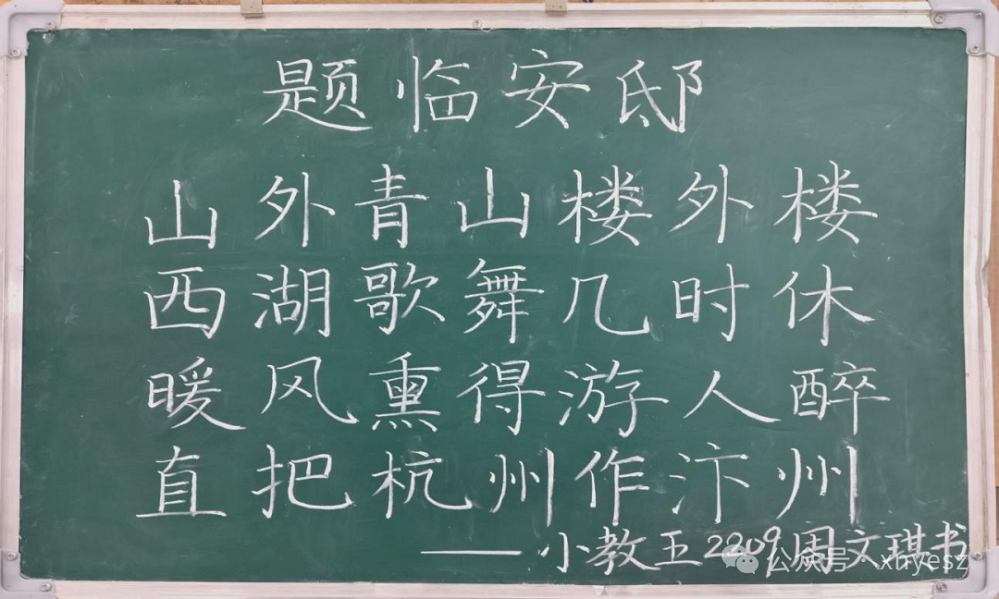 题临安邸
山外青山楼外楼
西湖歌舞几时休
暖风熏得游人醉
直把杭州作汴州
——小教五2209周文琪书
公众号·xnyesz